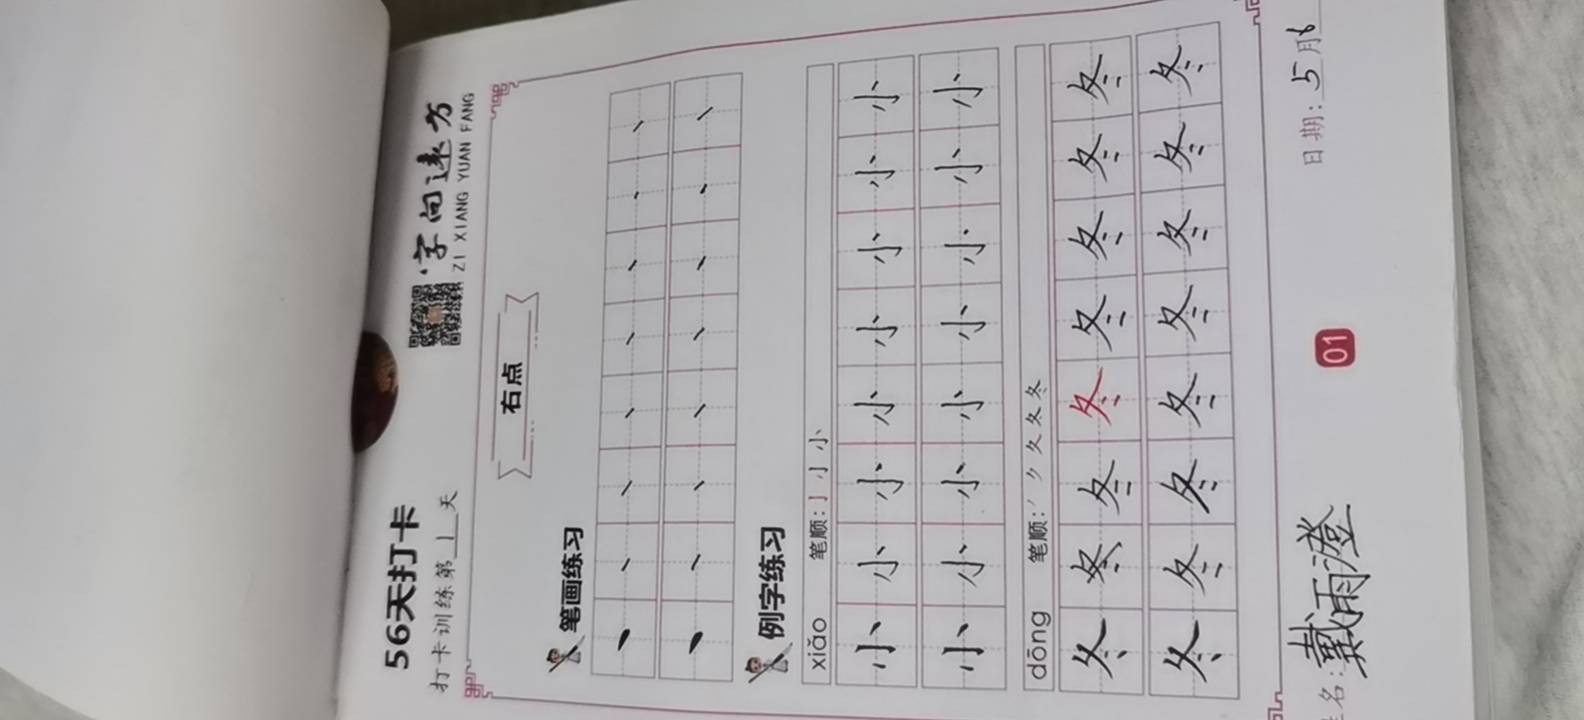 56天打卡
打卡训练第1天
字向速方
ZI XIANG YUAN FANG
右点
笔画练习
例字练习
xiǎo 笔顺: 亅 小 小
小 小 小 小 小 小 小 小
小 小 小 小 小 小 小 小
dōng 笔顺: ノ ク 夂 冬 冬
冬 冬 冬 冬 冬 冬 冬 冬
冬 冬 冬 冬 冬 冬 冬 冬
名: 戴雨澄 日期: 5月6
01